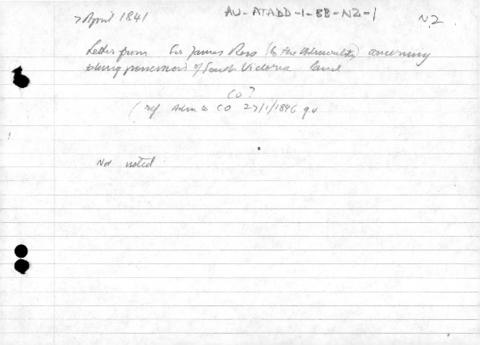 7 April 1841 AU-ATADD-1-BB-NZ-1 NZ
Letter from Sir James Ross (to the Admiralty) concerning
taking possession of South Victoria Land
CO?
(ref Adm to CO 27/1/1846 qv
Not noted